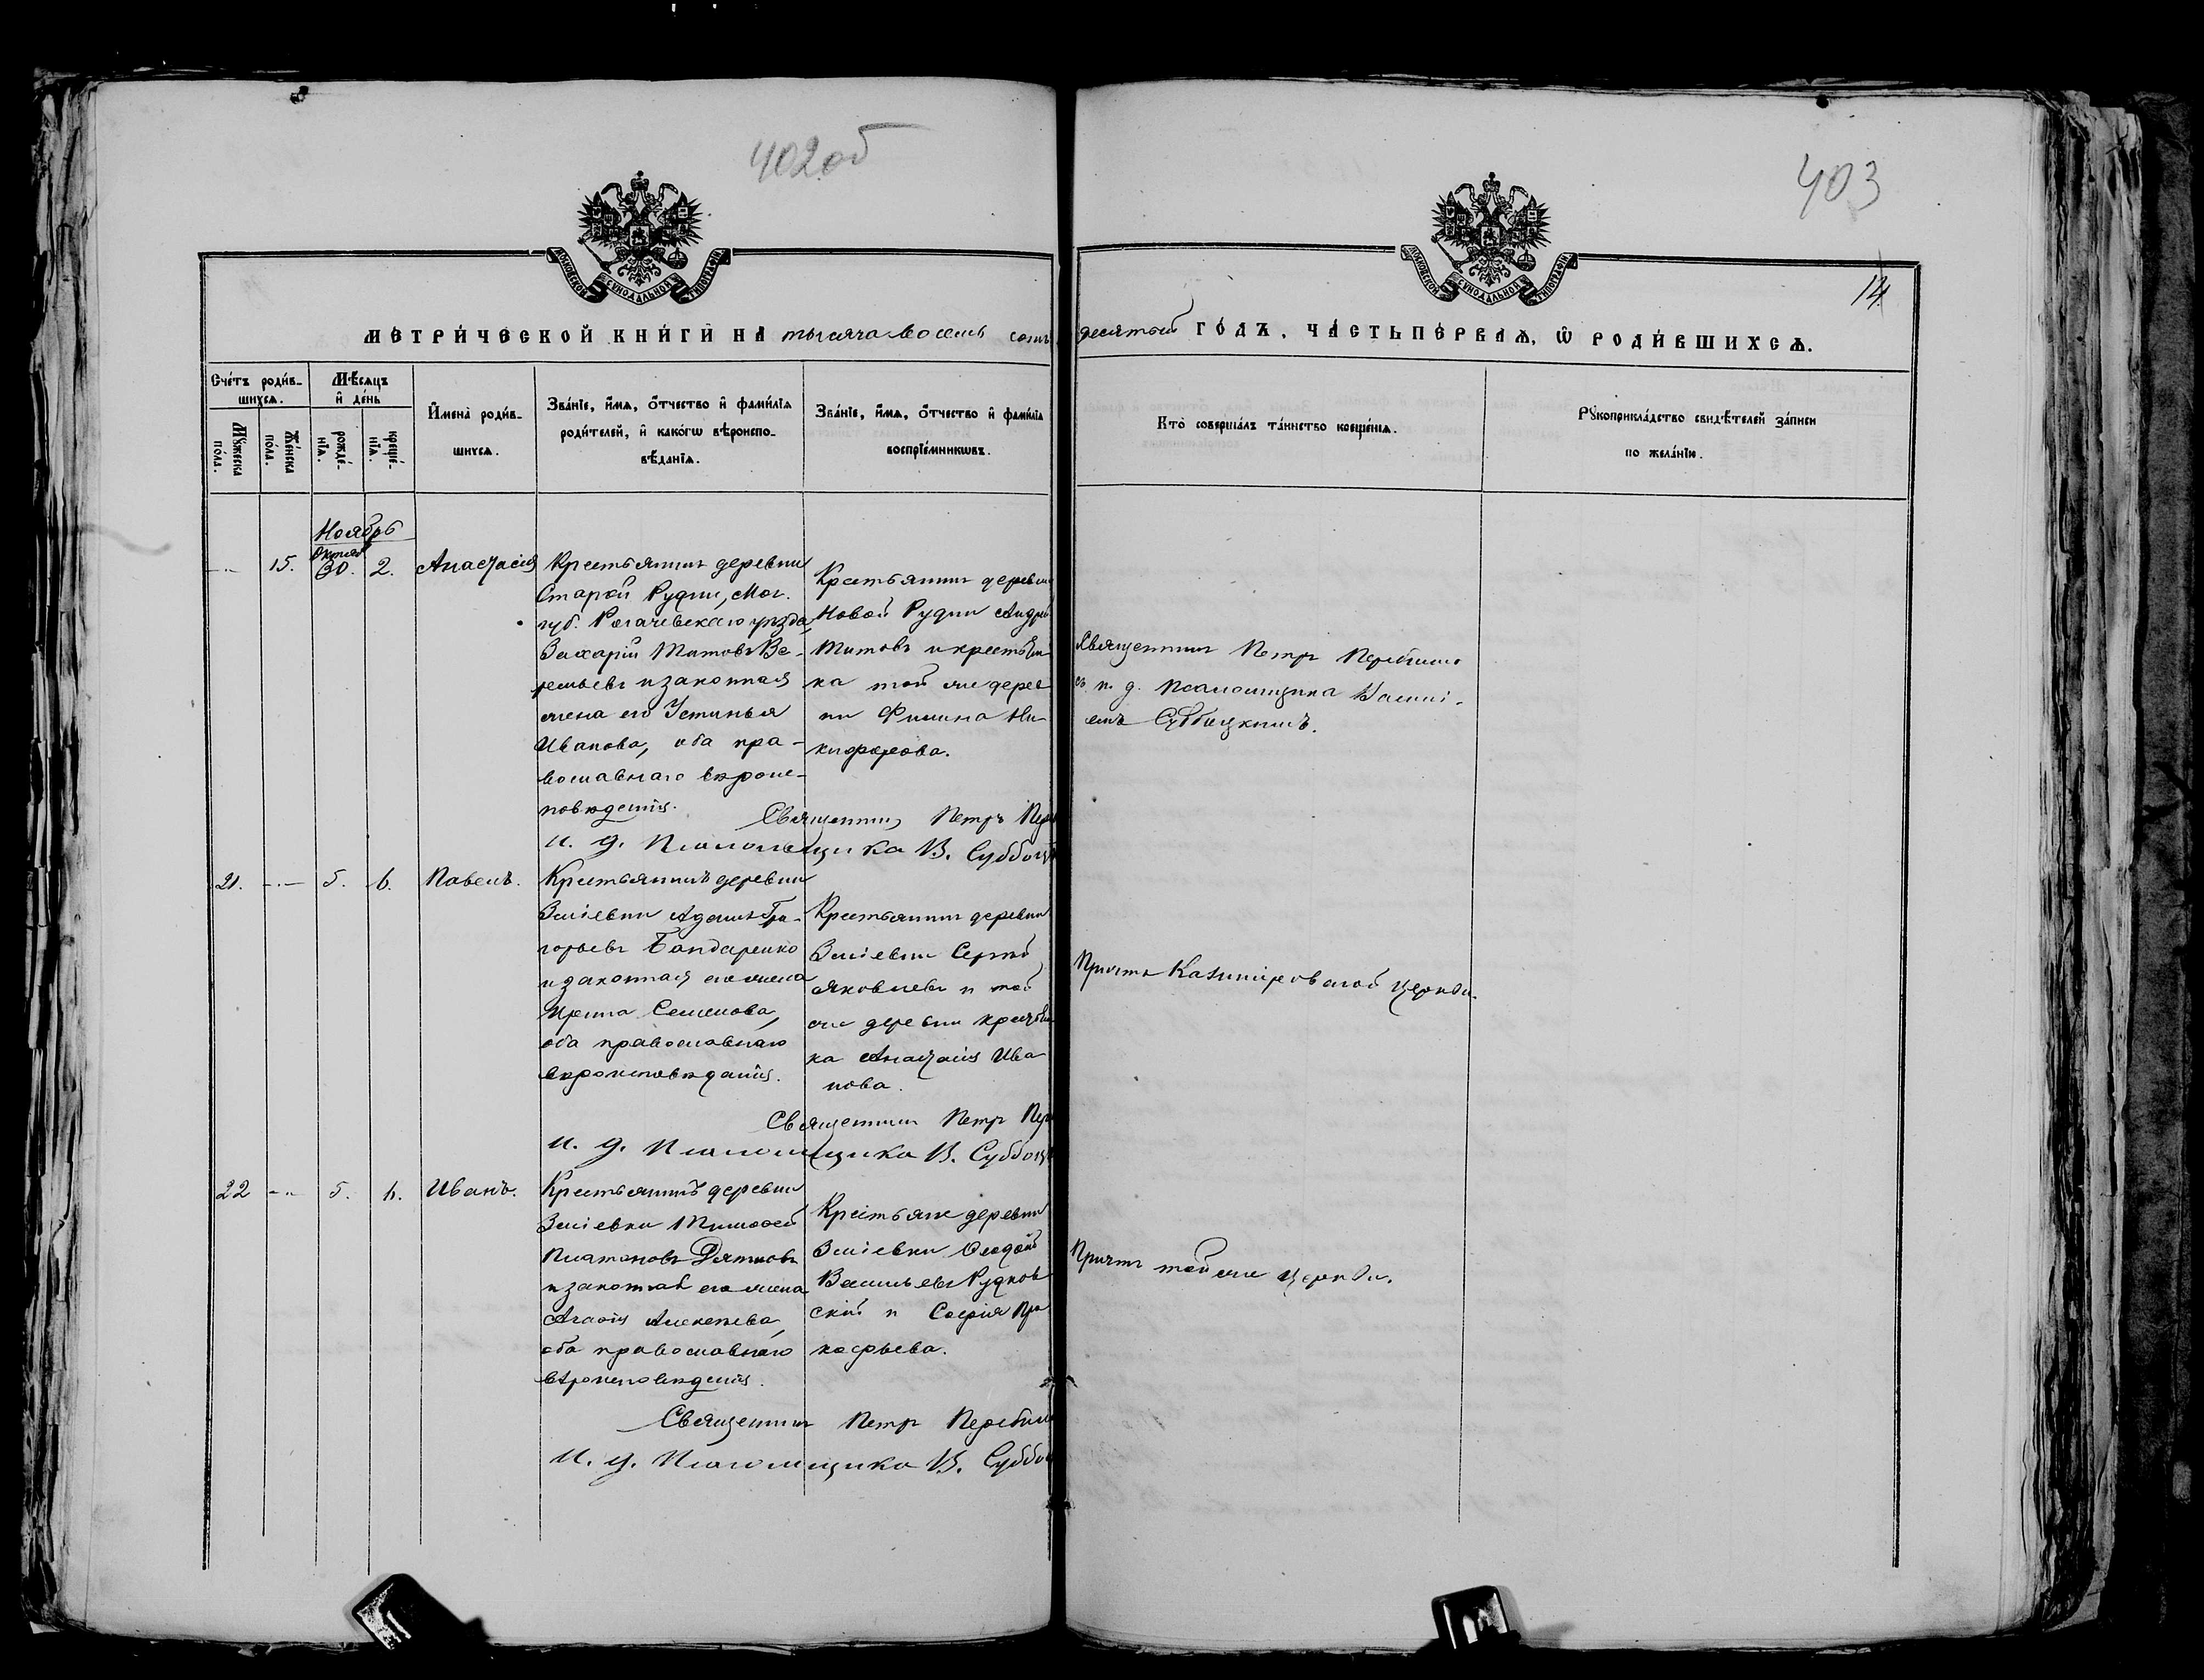 402об
403
14
МОСКОВСКОЙ СѴНОДАЛЬНОЙ ТИПОГРАФІИ
МОСКОВСКОЙ СѴНОДАЛЬНОЙ ТИПОГРАФІИ
МЕТРИЧЕСКОЙ КНИГИ НА тысяча восемь сотъ десятый ГОДЪ, ЧАСТЬ ПЕРВАѦ, Ѡ РОДИВШИХСѦ.
Счетъ родив-
шихсѧ.
Мѣсѧцъ
и день
Имена родив-
шихсѧ.
Званіе, имѧ, отчество и фамиліѧ
родителей, и какогѡ вѣроиспо-
вѣданіѧ.
Званіе, имѧ, отчество и фамиліѧ
воспріемникѡвъ.
Кто совершалъ таинство крещеніѧ.
Рꙋкоприкладство свидѣтелей записи
по желанію.
Мꙋжеска
пола.
Женска
пола.
рожде-
ніѧ.
креще-
ніѧ.
Ноябрь
Октяб
15. 30. 2. Анастасія
Крестьянинъ деревни
Старой Рудни, Мог.
губ. Рогачевскаго уѣзда,
Захарій Титовъ Ве-
ремьевъ и законная
жена его Устинья
Иванова, оба пра-
вославнаго вѣроис-
повѣданія.
Крестьянинъ деревни
Новой Рудни Андрей
Титовъ и крестьян
ка той же дерев
ни Фимина Ни-
кифорова.
Священникъ Петръ
съ и. д. псаломщика Васілі-
емъ Субботцкимъ.
Священникъ Петръ
и. д. Псаломщика В. Суббоц
21. 5. 6. Павелъ.
Крестьянинъ деревни
Зміевки Адамъ Гри-
горьевъ Бондаренко
и законная его жена
Ирина Семенова,
оба православнаго
вѣроисповѣданія.
Крестьянинъ деревни
Зміевки Сергѣй
Яковлевъ и той
же деревни крестьян
ка Анастасія Ива
нова.
Причтъ Казиміровской церкви.
Священникъ Петръ
и. д. Псаломщика В. Суббоц
22 5. 6. Иванъ.
Крестьянинъ деревни
Зміевки Тимоѳей
Платоновъ Дятловъ
и законная его жена
Агаѳія Алексѣева,
оба православнаго
вѣроисповѣданія.
Крестьяне деревни
Зміевки Ѳеодоръ
Васильевъ Рудков
скій и Софія Про
кофьева.
Причтъ той же церкви.
Священникъ Петръ
и. д. Псаломщика В. Суббо